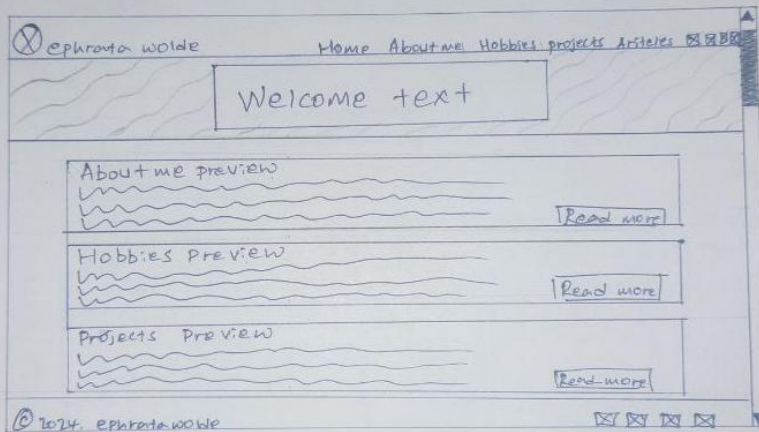 ephrata wolde Home About me Hobbies projects Ariteles
Welcome text
About me preview
Read more
Hobbies Preview
Read more
Projects Preview
Read more
© 2024. ephrata wolde